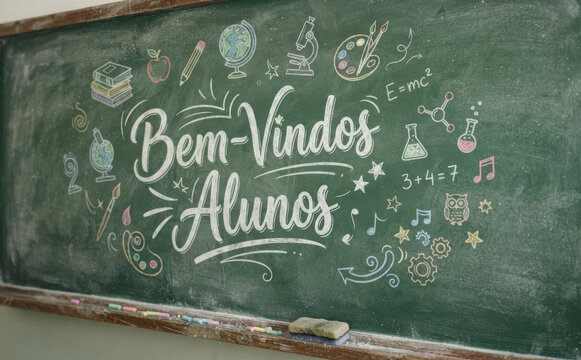 Bem-Vindos
Alunos
E=mc²
3+4=7
2